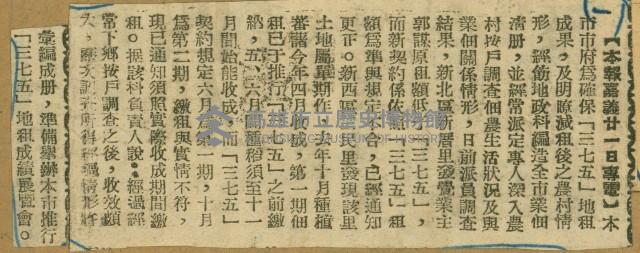 【本報嘉義廿一日專電】本
市市府爲確保「三七五」地租
成果，及明瞭減租後之農村情
形，經飭地政科編造全市業佃
清册，並經常派定專人深入農
村按戶調查佃農生活狀況及與
業佃個關係情形，日前派員調查
結果，新北區新厝里發覺業主
郭謀原租額低於「三七五」，
而新契約係依照「三七五」租
額爲準與規定不合，已經通知
更正。新西區　民里發現該里
土地屬單期作，去年十月種植
蕃薯今年四月收成，第一期佃
租已于推行「三七五」之前繳
納，五、六月種稻須至十一
月間始能收成，而「三七五」
契約規定六月爲第一期，十月
爲第二期，繳租與實情不符，
現已通知須照實際收成期間繳
租。據該科負責人說：經過經
常下鄉按戶調查之後，收效頗
大，
彙編成册，準備舉辦本市推行
「三七五」地租成績展覽會。
高雄市立歷史博物館